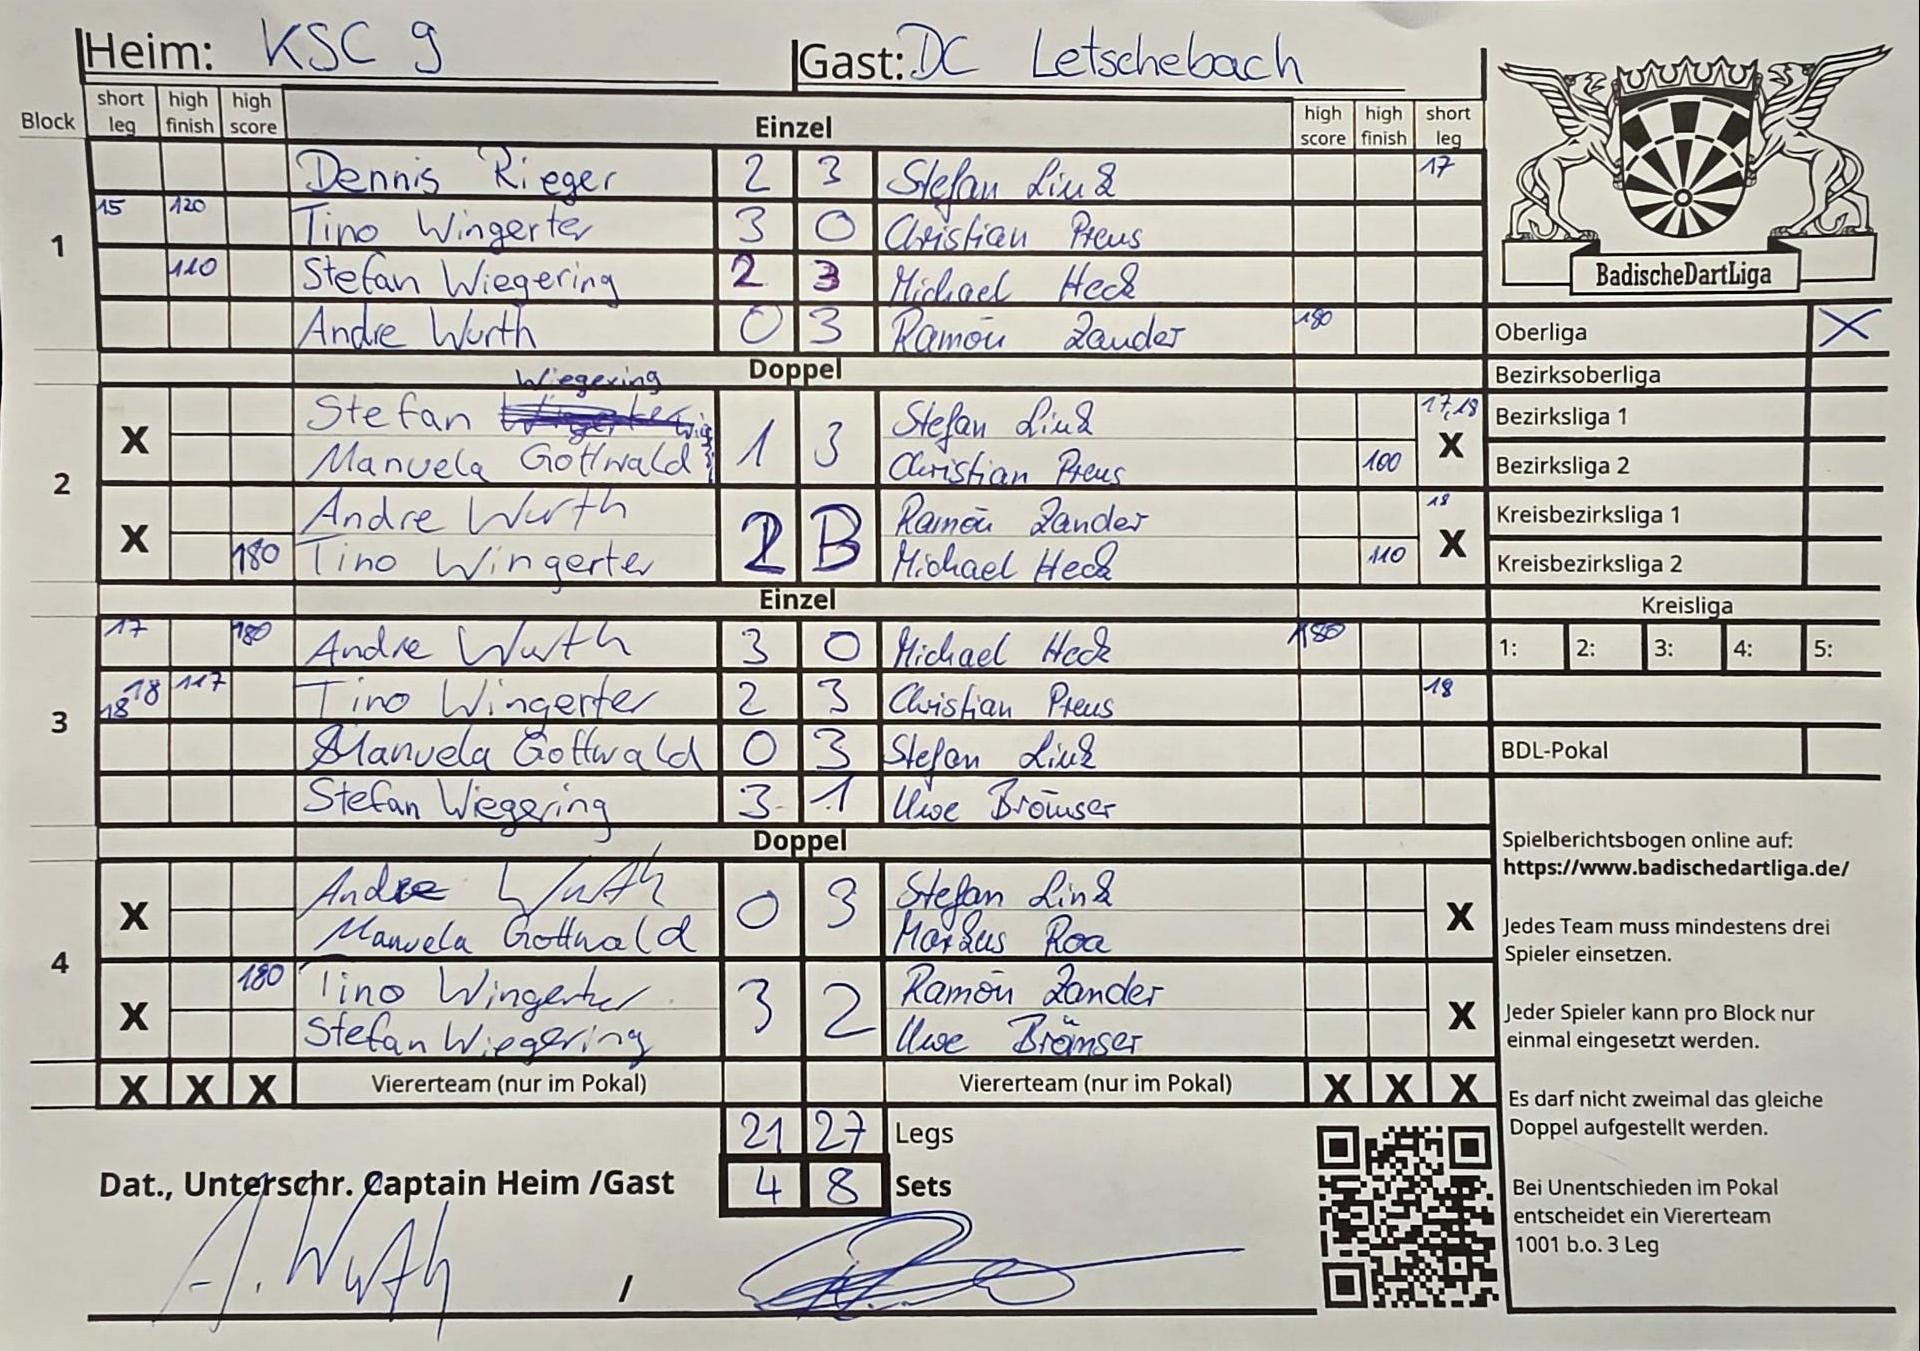 Heim: KSC 9 Gast: DC Letschebach
Block short leg high finish high score Einzel high score high finish short leg
1
Dennis Rieger 2 3 Stefan Link 17
15 120 Tino Wingerter 3 0 Christian Preus
110 Stefan Wiegering 2 3 Michael Heck
Andre Wurth 0 3 Ramon Zander 180
Doppel
2
Wiegering
X Stefan 1 3 Stefan Link 17,18 X
Manuela Gottwald Christian Preus 100
X Andre Wurth 2 3 Ramon Zander 18 X
180 Tino Wingerter Michael Heck 110
Einzel
3
17 180 Andre Wurth 3 0 Michael Heck 180
18 18 117 Tino Wingerter 2 3 Christian Preus 18
Manuela Gottwald 0 3 Stefan Link
Stefan Wiegering 3 1 Uwe Brömser
Doppel
4
X Andre Wurth 0 3 Stefan Link X
Manuela Gottwald Markus Roa
X 180 Tino Wingerter 3 2 Ramon Zander X
Stefan Wiegering Uwe Brömser
X X X Viererteam (nur im Pokal) Viererteam (nur im Pokal) X X X
21 27 Legs
Dat., Unterschr. Captain Heim /Gast 4 8 Sets
A. Wurth /
BadischeDartLiga
Oberliga X
Bezirksoberliga
Bezirksliga 1
Bezirksliga 2
Kreisbezirksliga 1
Kreisbezirksliga 2
Kreisliga
1: 2: 3: 4: 5:
BDL-Pokal
Spielberichtsbogen online auf:
https://www.badischedartliga.de/
Jedes Team muss mindestens drei
Spieler einsetzen.
Jeder Spieler kann pro Block nur
einmal eingesetzt werden.
Es darf nicht zweimal das gleiche
Doppel aufgestellt werden.
Bei Unentschieden im Pokal
entscheidet ein Viererteam
1001 b.o. 3 Leg